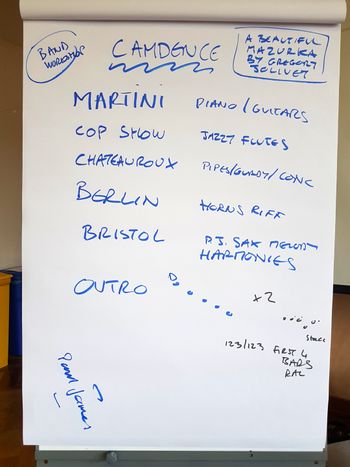 BAND
WORKSHOP
CAMDENCE
A BEAUTIFUL
MAZURKA
BY GREGORY
JOLIVET
MARTINI PIANO/GUITARS
COP SHOW JAZZY FLUTES
CHATEAUROUX PIPES/GURDY/CONC
BERLIN HORNS RIFF
BRISTOL P.J. SAX MELODY
HARMONIES
OUTRO x2
123/123 FIRST 4
BARS
Paul James